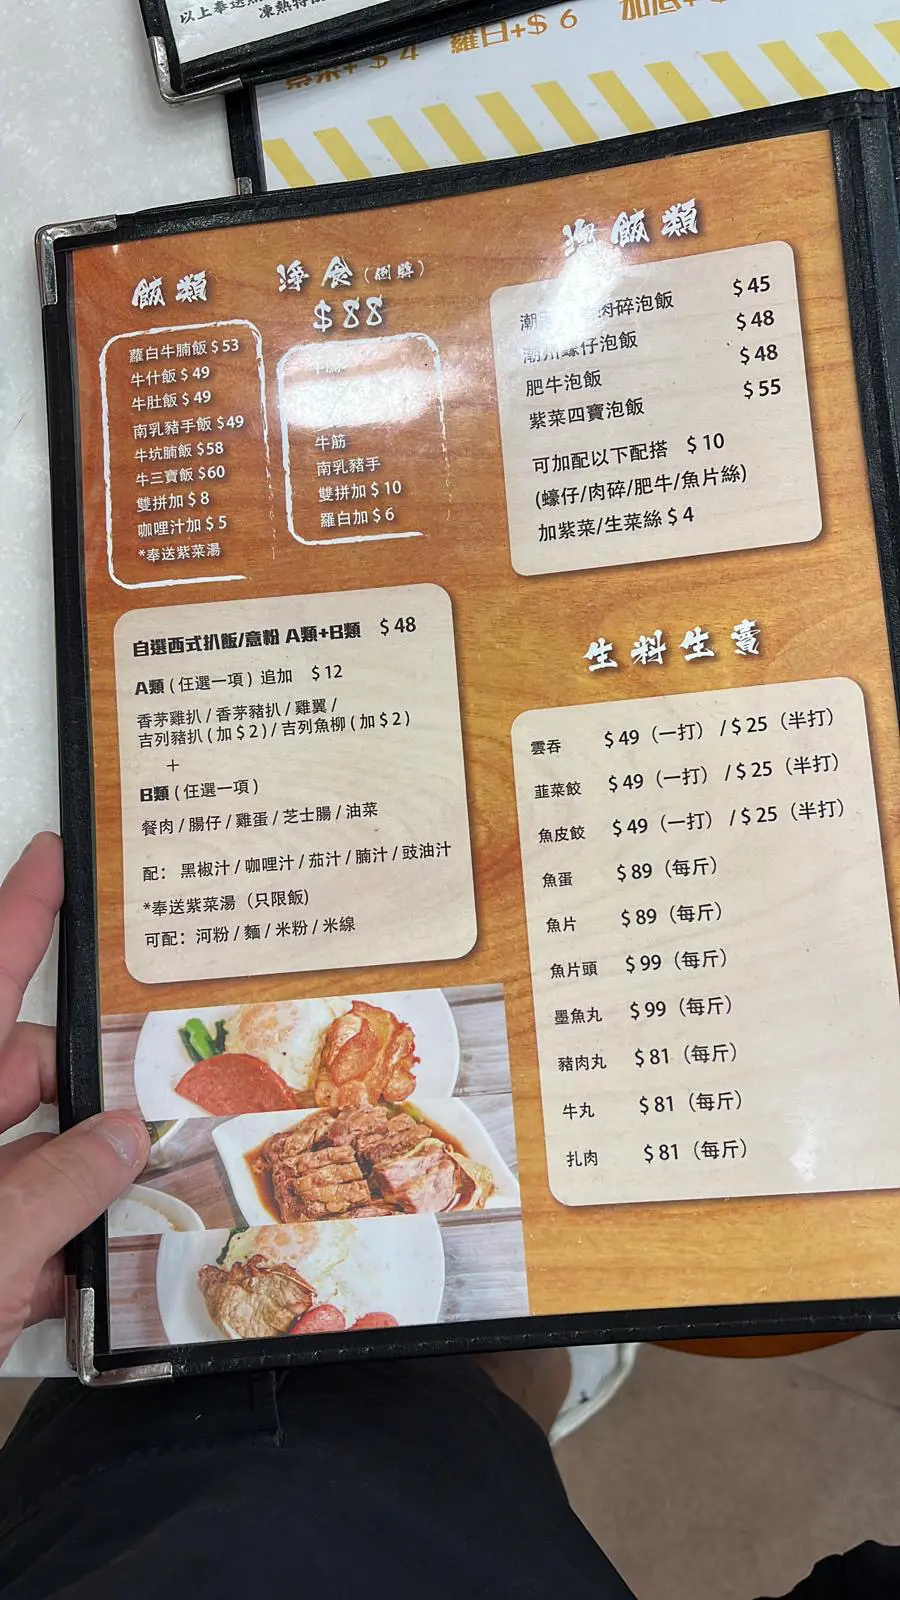 以上奉送
蘿白+$6
飯類
蘿白牛腩飯 $53
牛什飯 $49
牛肚飯 $49
南乳豬手飯 $49
牛坑腩飯 $58
牛三寶飯 $60
雙拼加 $8
咖哩汁加 $5
*奉送紫菜湯
淨食
$88
牛筋
南乳豬手
雙拼加 $10
羅白加 $6
泡飯類
肉碎泡飯 $45
潮州蠔仔泡飯 $48
肥牛泡飯 $48
紫菜四寶泡飯 $55
可加配以下配搭 $10
(蠔仔/肉碎/肥牛/魚片絲)
加紫菜/生菜絲 $4
自選西式扒飯/意粉 A類+B類 $48
A類 (任選一項) 追加 $12
香茅雞扒 / 香茅豬扒 / 雞翼 /
吉列豬扒 (加 $2) / 吉列魚柳 (加 $2)
+
B類 (任選一項)
餐肉 / 腸仔 / 雞蛋 / 芝士腸 / 油菜
配：黑椒汁 / 咖哩汁 / 茄汁 / 腩汁 / 豉油汁
*奉送紫菜湯（只限飯)
可配：河粉 / 麵 / 米粉 / 米線
生料生賣
雲吞 $49（一打） / $25（半打）
韮菜餃 $49（一打） / $25（半打）
魚皮餃 $49（一打） / $25（半打）
魚蛋 $89（每斤）
魚片 $89（每斤）
魚片頭 $99（每斤）
墨魚丸 $99（每斤）
豬肉丸 $81（每斤）
牛丸 $81（每斤）
扎肉 $81（每斤）